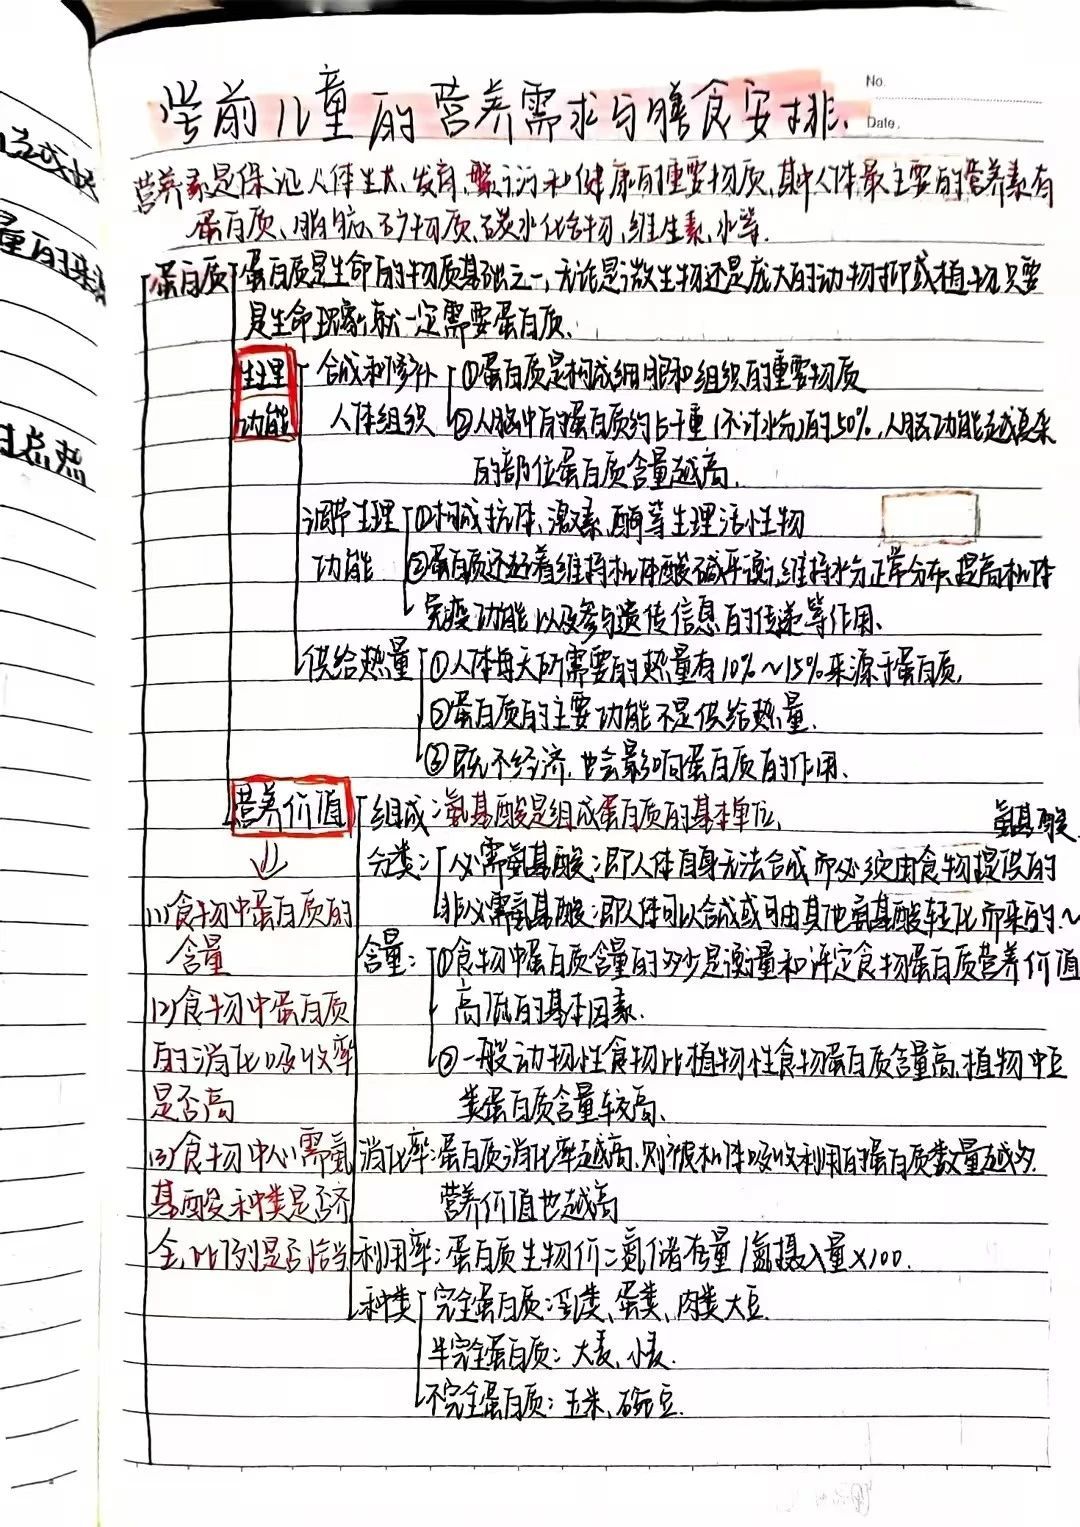 No.
Date.
学前儿童的营养需求与膳食安排.
营养素是保证人体生长、发育、繁衍和健康的重要物质,其中人体最主要的营养素有
蛋白质、脂肪、矿物质、碳水化合物、维生素、水等.
蛋白质 蛋白质是生命的物质基础之一,无论是微生物还是庞大的动物抑或植物只要
是生命现象,就一定需要蛋白质.
生理 合成和修补 ①蛋白质是构成细胞和组织的重要物质
功能 人体组织 ②人脑中的蛋白质约占干重(不计水分)的50%,人脑功能越复杂
的部位蛋白质含量越高.
调节生理 ①构成抗体、激素、酶等生理活性物
功能 ②蛋白质还起着维持机体酸碱平衡,维持水分正常分布,提高机体
免疫功能以及参与遗传信息的传递等作用.
供给热量 ①人体每天所需要的热量有10%~15%来源于蛋白质,
②蛋白质的主要功能不是供给热量.
③既不经济,也会影响蛋白质的作用.
营养价值 组成:氨基酸是组成蛋白质的基本单位,
氨基酸.
分类: 必需氨基酸:即人体自身无法合成而必须由食物提供的
非必需氨基酸:即人体可以合成或可由其他氨基酸转化而来的.~
(1)食物中蛋白质的
含量
含量: ①食物中蛋白质含量的多少是衡量和评定食物蛋白质营养价值
高低的基本因素.
(2)食物中蛋白质
的消化吸收率
是否高
②一般动物性食物比植物性食物蛋白质含量高,植物中豆
类蛋白质含量较高.
(3)食物中必需氨
基酸种类是否齐
全,比例是否恰当
消化率:蛋白质消化率越高,则被机体吸收利用的蛋白质数量越多.
营养价值也越高
利用率:蛋白质生物价=氮储存量/氮摄入量×100.
种类 完全蛋白质:乳类、蛋类、肉类大豆.
半完全蛋白质:大麦、小麦.
不完全蛋白质:玉米、豌豆.